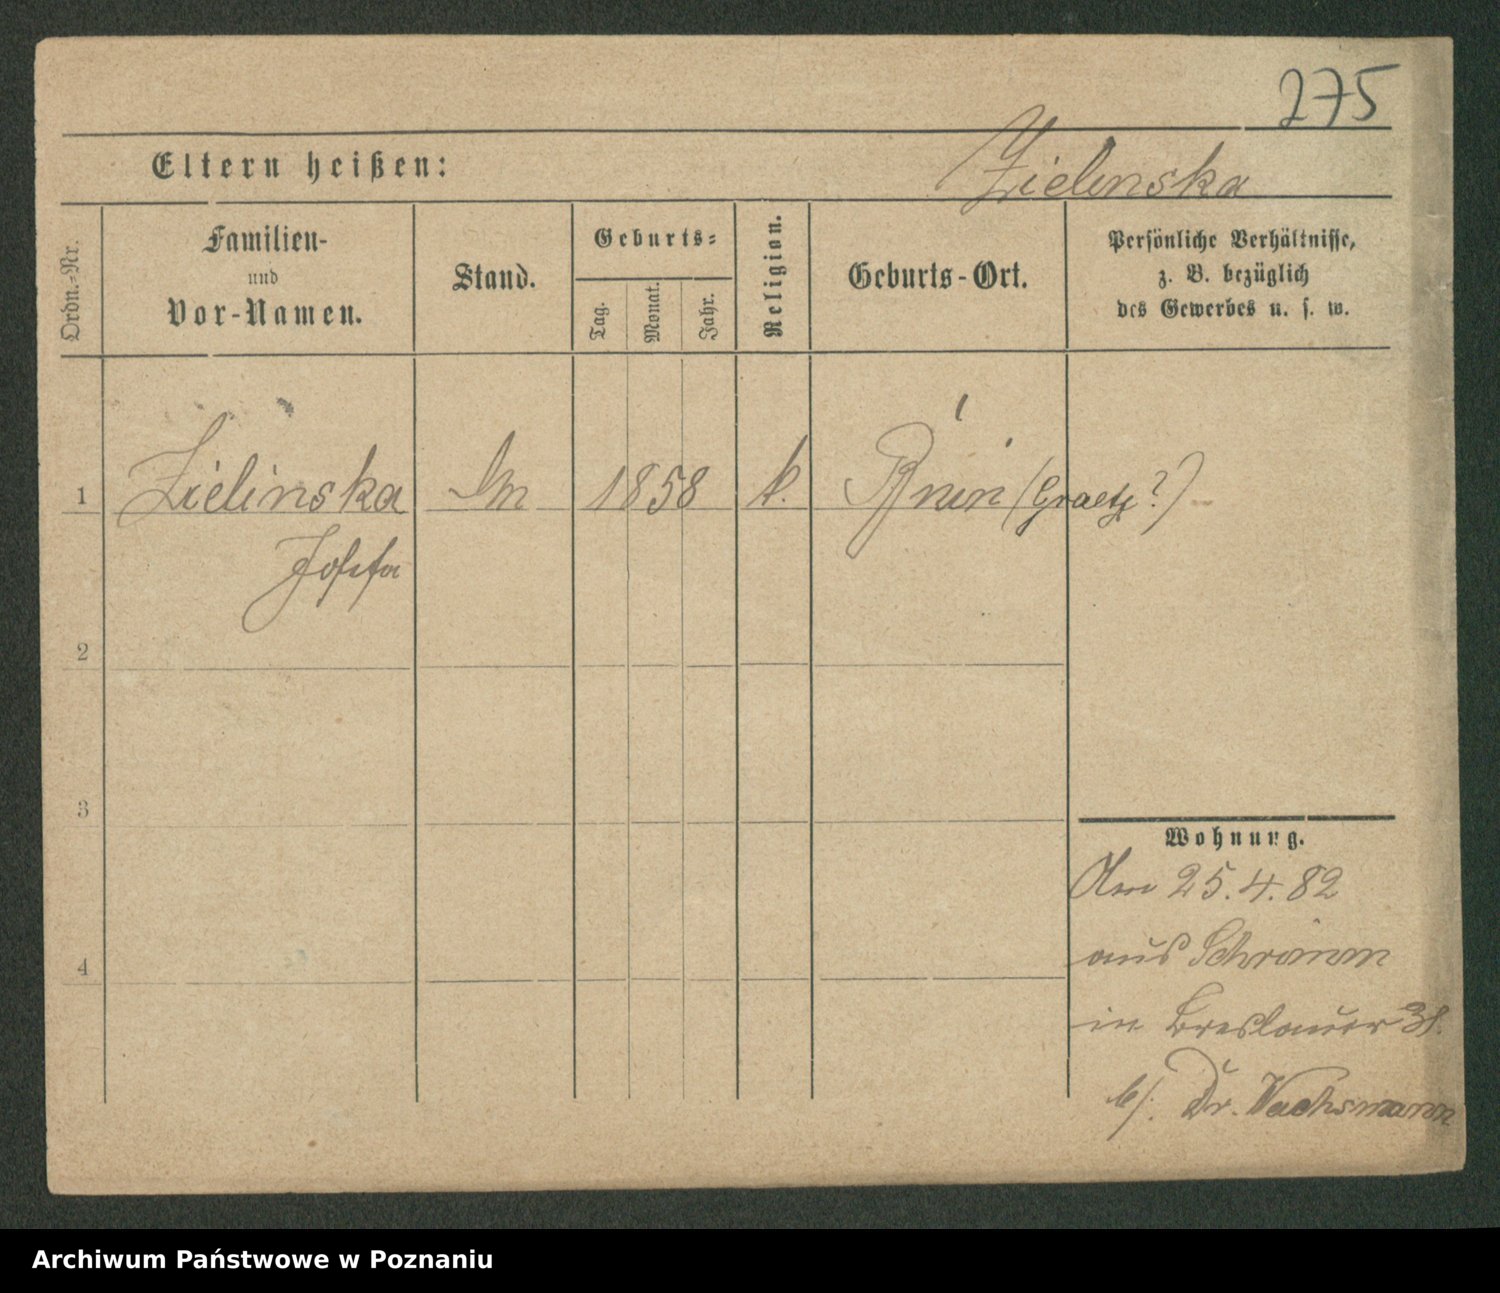 275
Eltern heißen:
Zielinska
Ordn.-Nr.
Familien-
und
Vor-Namen.
Stand.
Geburts-
Tag.
Monat.
Jahr.
Religion.
Geburts-Ort.
Persönliche Verhältnisse,
z. B. bezüglich
des Gewerbes u. s. w.
1 Zielinska 1858 k. Bnin (Graetz?)
Josefa
2
3
4
Wohnung.
Am 25.4.82
aus Schrimm
in Breslauer 31.
b/. Dr. Wachsmann
Archiwum Państwowe w Poznaniu